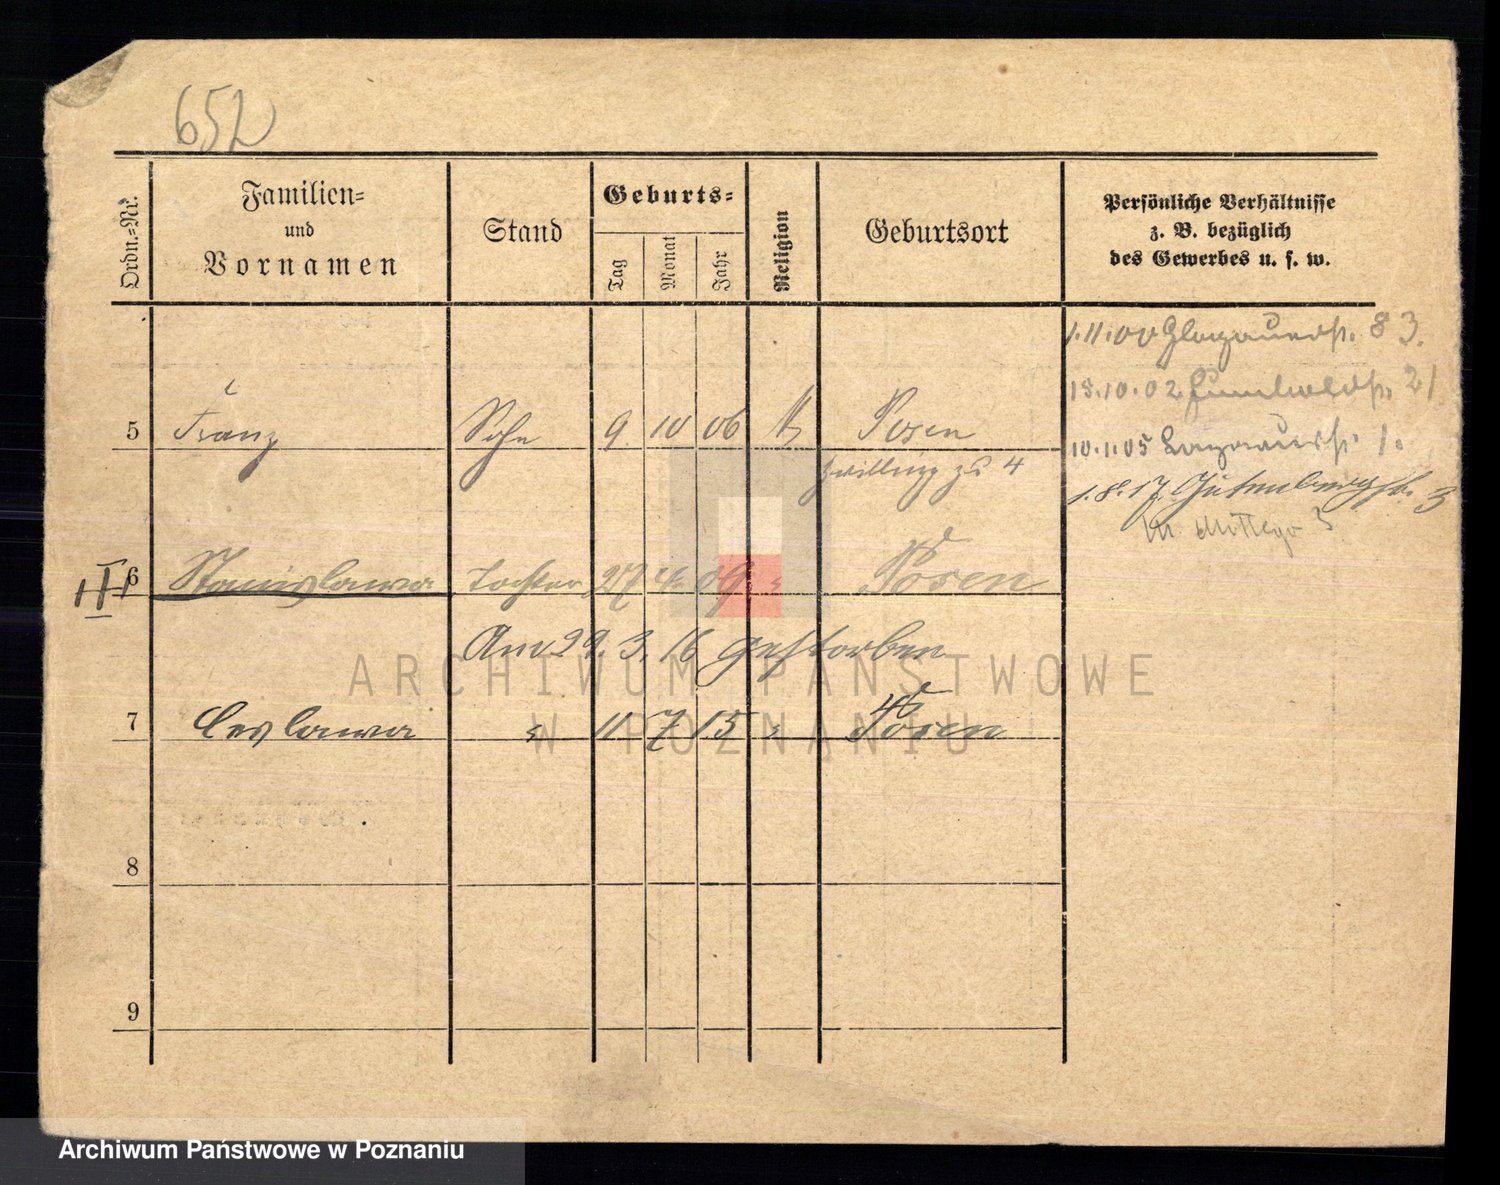 652
Ordn.-Nr.
Familien-
und
Vornamen
Stand
Geburts-
Tag
Monat
Jahr
Religion
Geburtsort
Persönliche Verhältnisse
z. B. bezüglich
des Gewerbes u. s. w.
1.11.00 Glogauerstr. 83.
18.10.02 21
5 Franz Sohn 9. 10 06 Posen
10.1.05 1.
Zwilling zu 4
1.8.17 Gutenbergstr. 3
III 6 Stanislawa Tochter 27 4 09 " Posen
Am 29.3.16 gestorben
ARCHIWUM PAŃSTWOWE
7 Ceslawa " 11. 7 15 " Posen
W POZNANIU
8
9
Archiwum Państwowe w Poznaniu